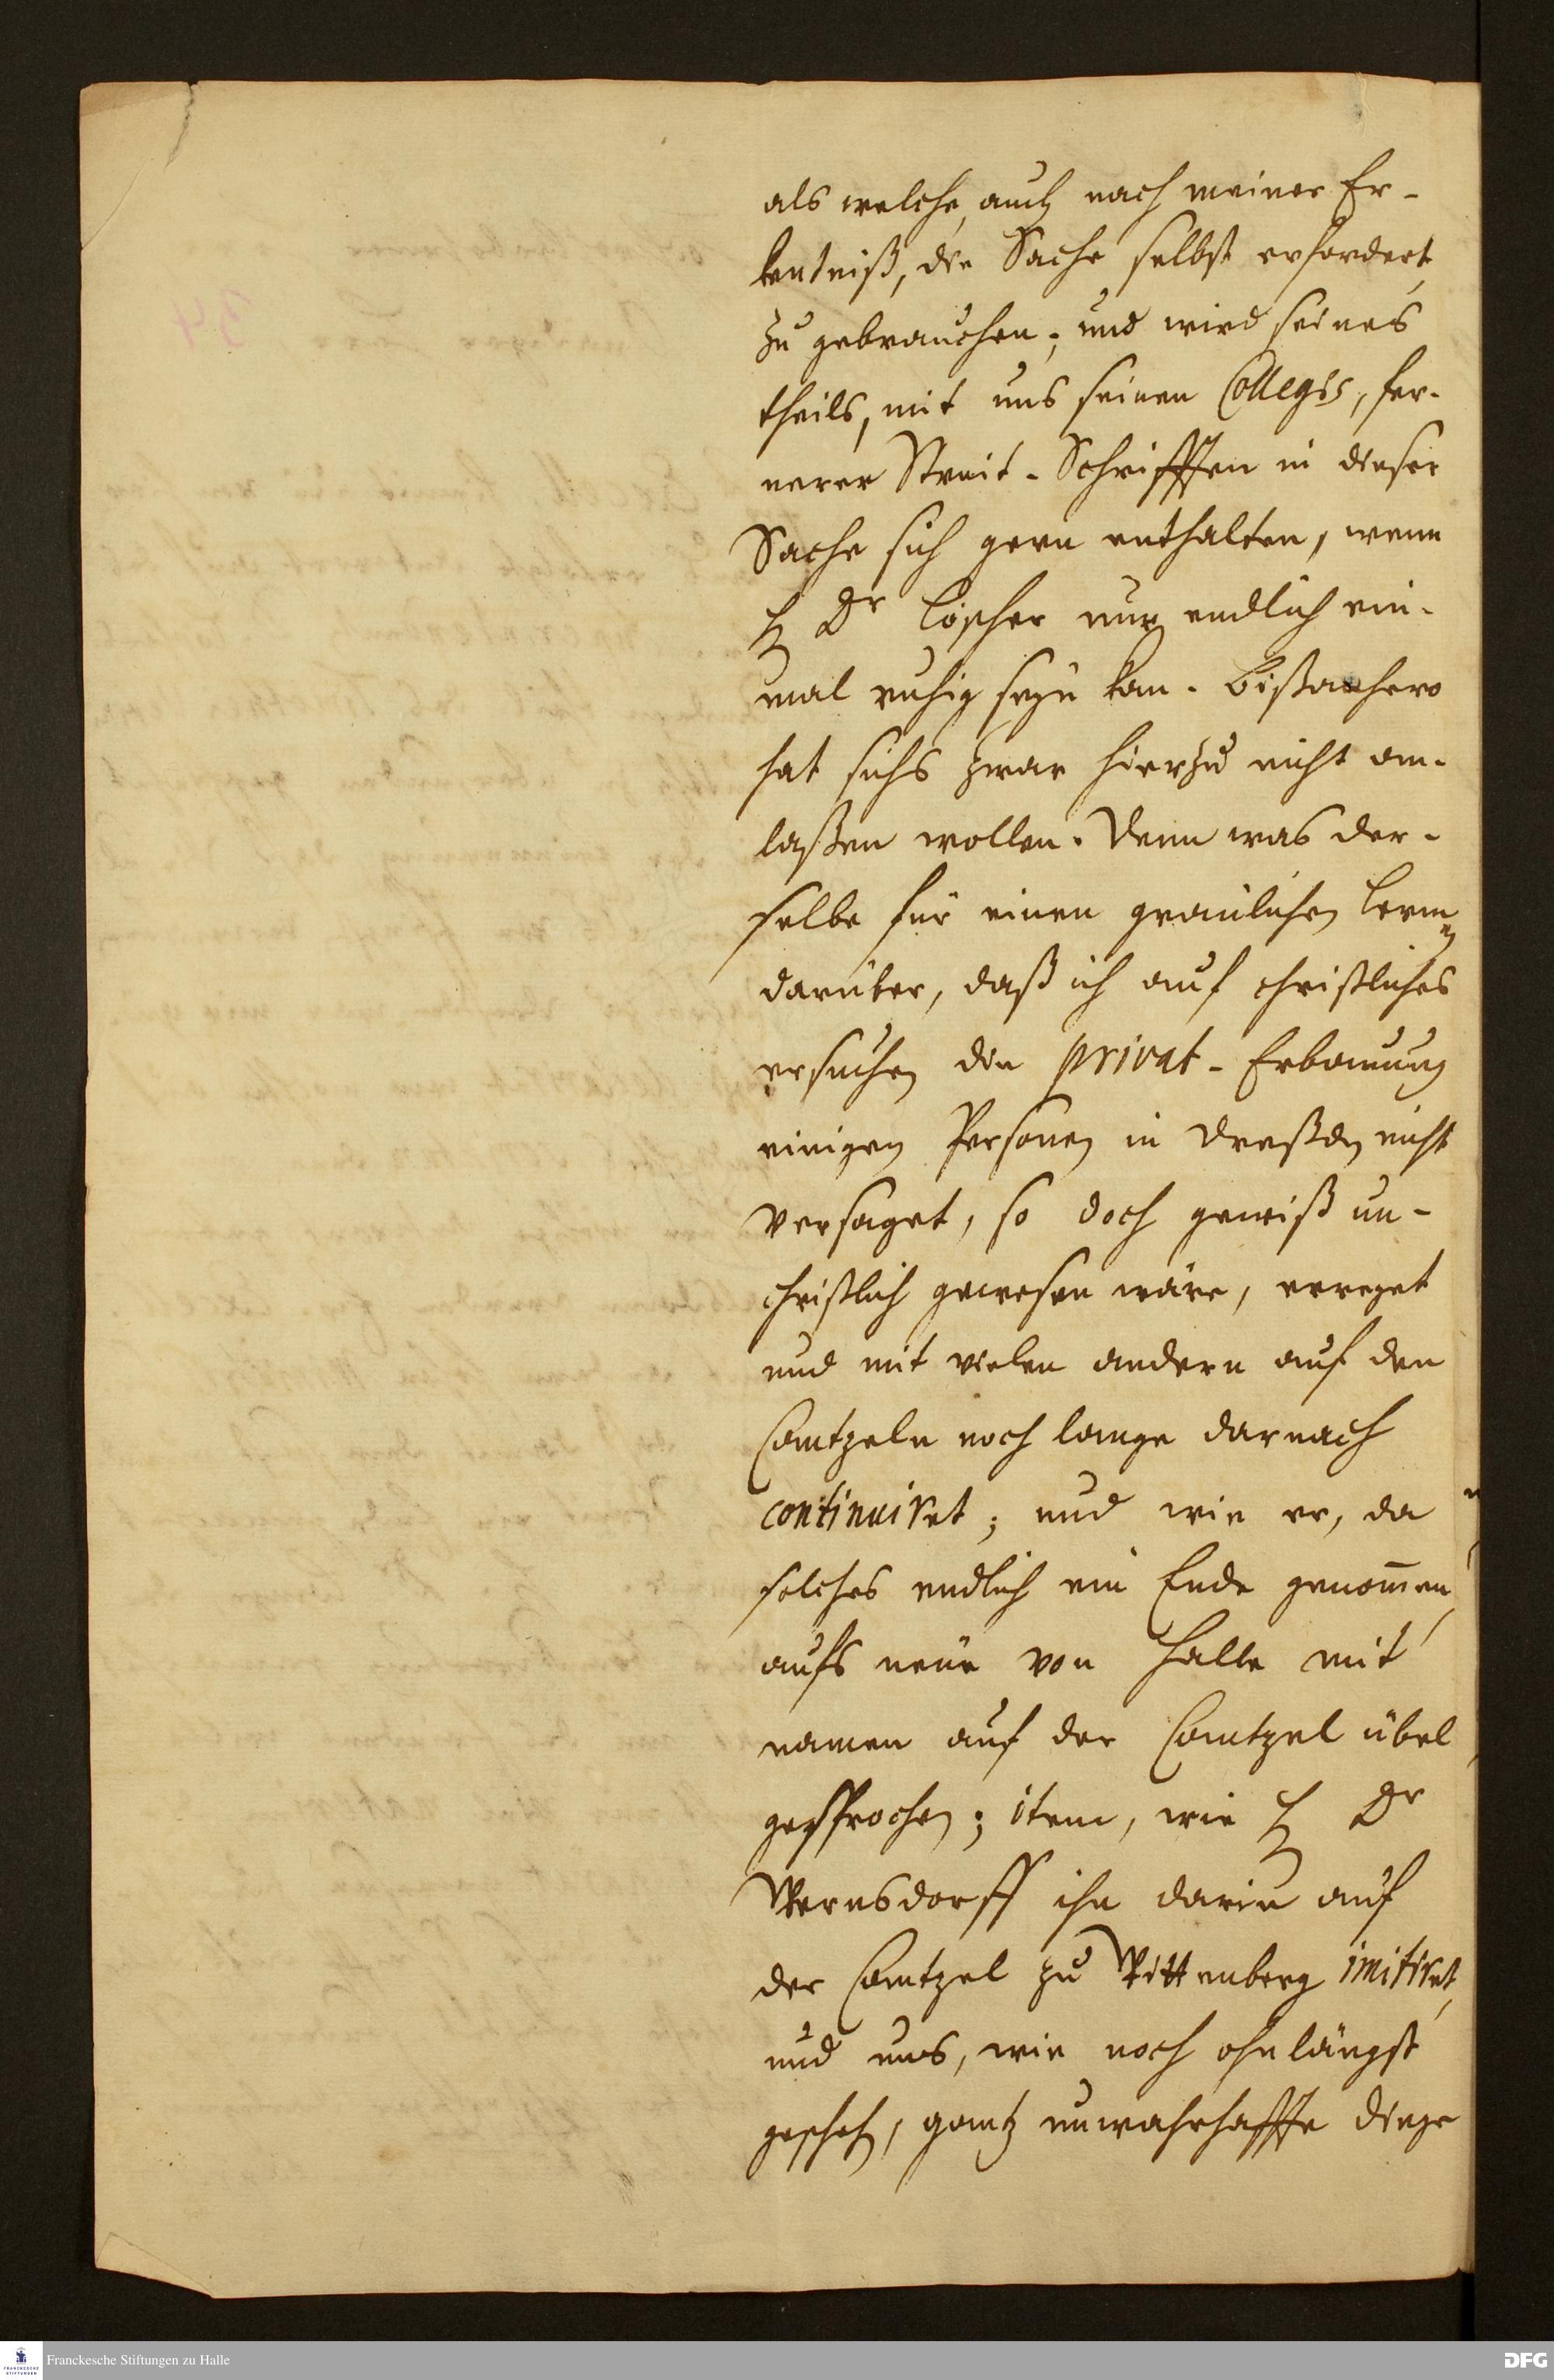 als welche, auch nach meiner Er-
kentniß, die Sache selbst erfordert,
zu gebrauchen; und wird seines
theils, mit uns seinen Collegis, fer-
nerer Streit-Schrifften in dieser
Sache sich gern enthalten, wenn
H Dr Löscher nur endlich ein-
mal ruhig seyn kan. Bißanhero
hat sichs zwar hierzu nicht an-
laßen wollen. Denn was der-
selbe für einen greulichen Lermen
darüber, daß ich auf christliches
ersuchen die privat-Erbauung
einigen Personen in Dreßden nicht
versaget, so doch gewiß un-
christlich gewesen wäre, erreget
und mit vielen andern auf den
Cantzeln noch lange darnach
continuiret; und wie er, da
solches endlich ein Ende genom̅en,
aufs neue von Halle mit
namen auf der Cantzel übel
gesprochen; item, wie H Dr
Wernsdorff ihn darin auf
der Cantzel zu Wittenberg imitiret,
und uns, wie noch ohnlängst
gescheh, gantz unwahrhaffte dinge
Franckesche Stiftungen zu Halle
FRANCKESCHE
STIFTUNGEN
DFG